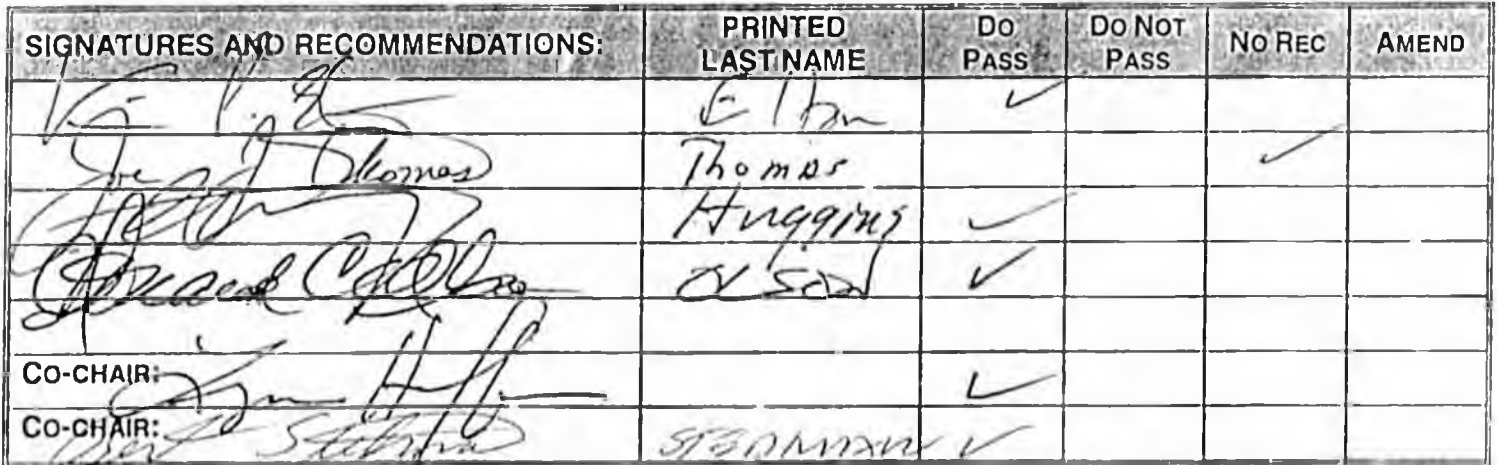 SIGNATURES AND RECOMMENDATIONS: PRINTED LAST NAME DO PASS DO NOT PASS NO REC AMEND
Elton ✓
Joe J Thomas Thomas ✓
Huggins ✓
Olson ✓
CO-CHAIR: Lyman Hoffman ✓
CO-CHAIR: Bert Stedman STEDMAN ✓